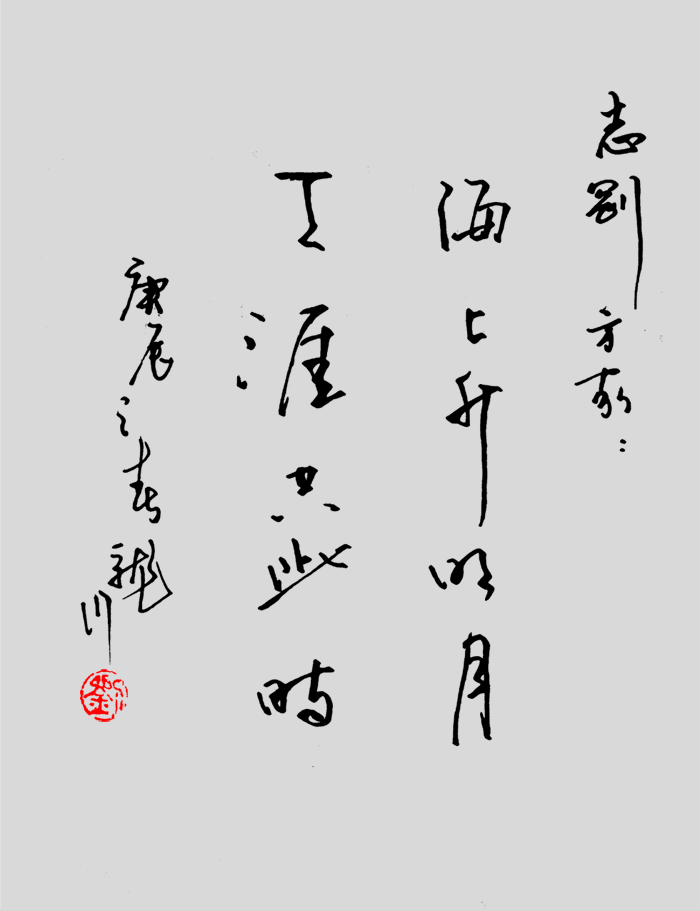 志剛方家：
海上升明月
天涯共此時
庚辰之春龍川
劉